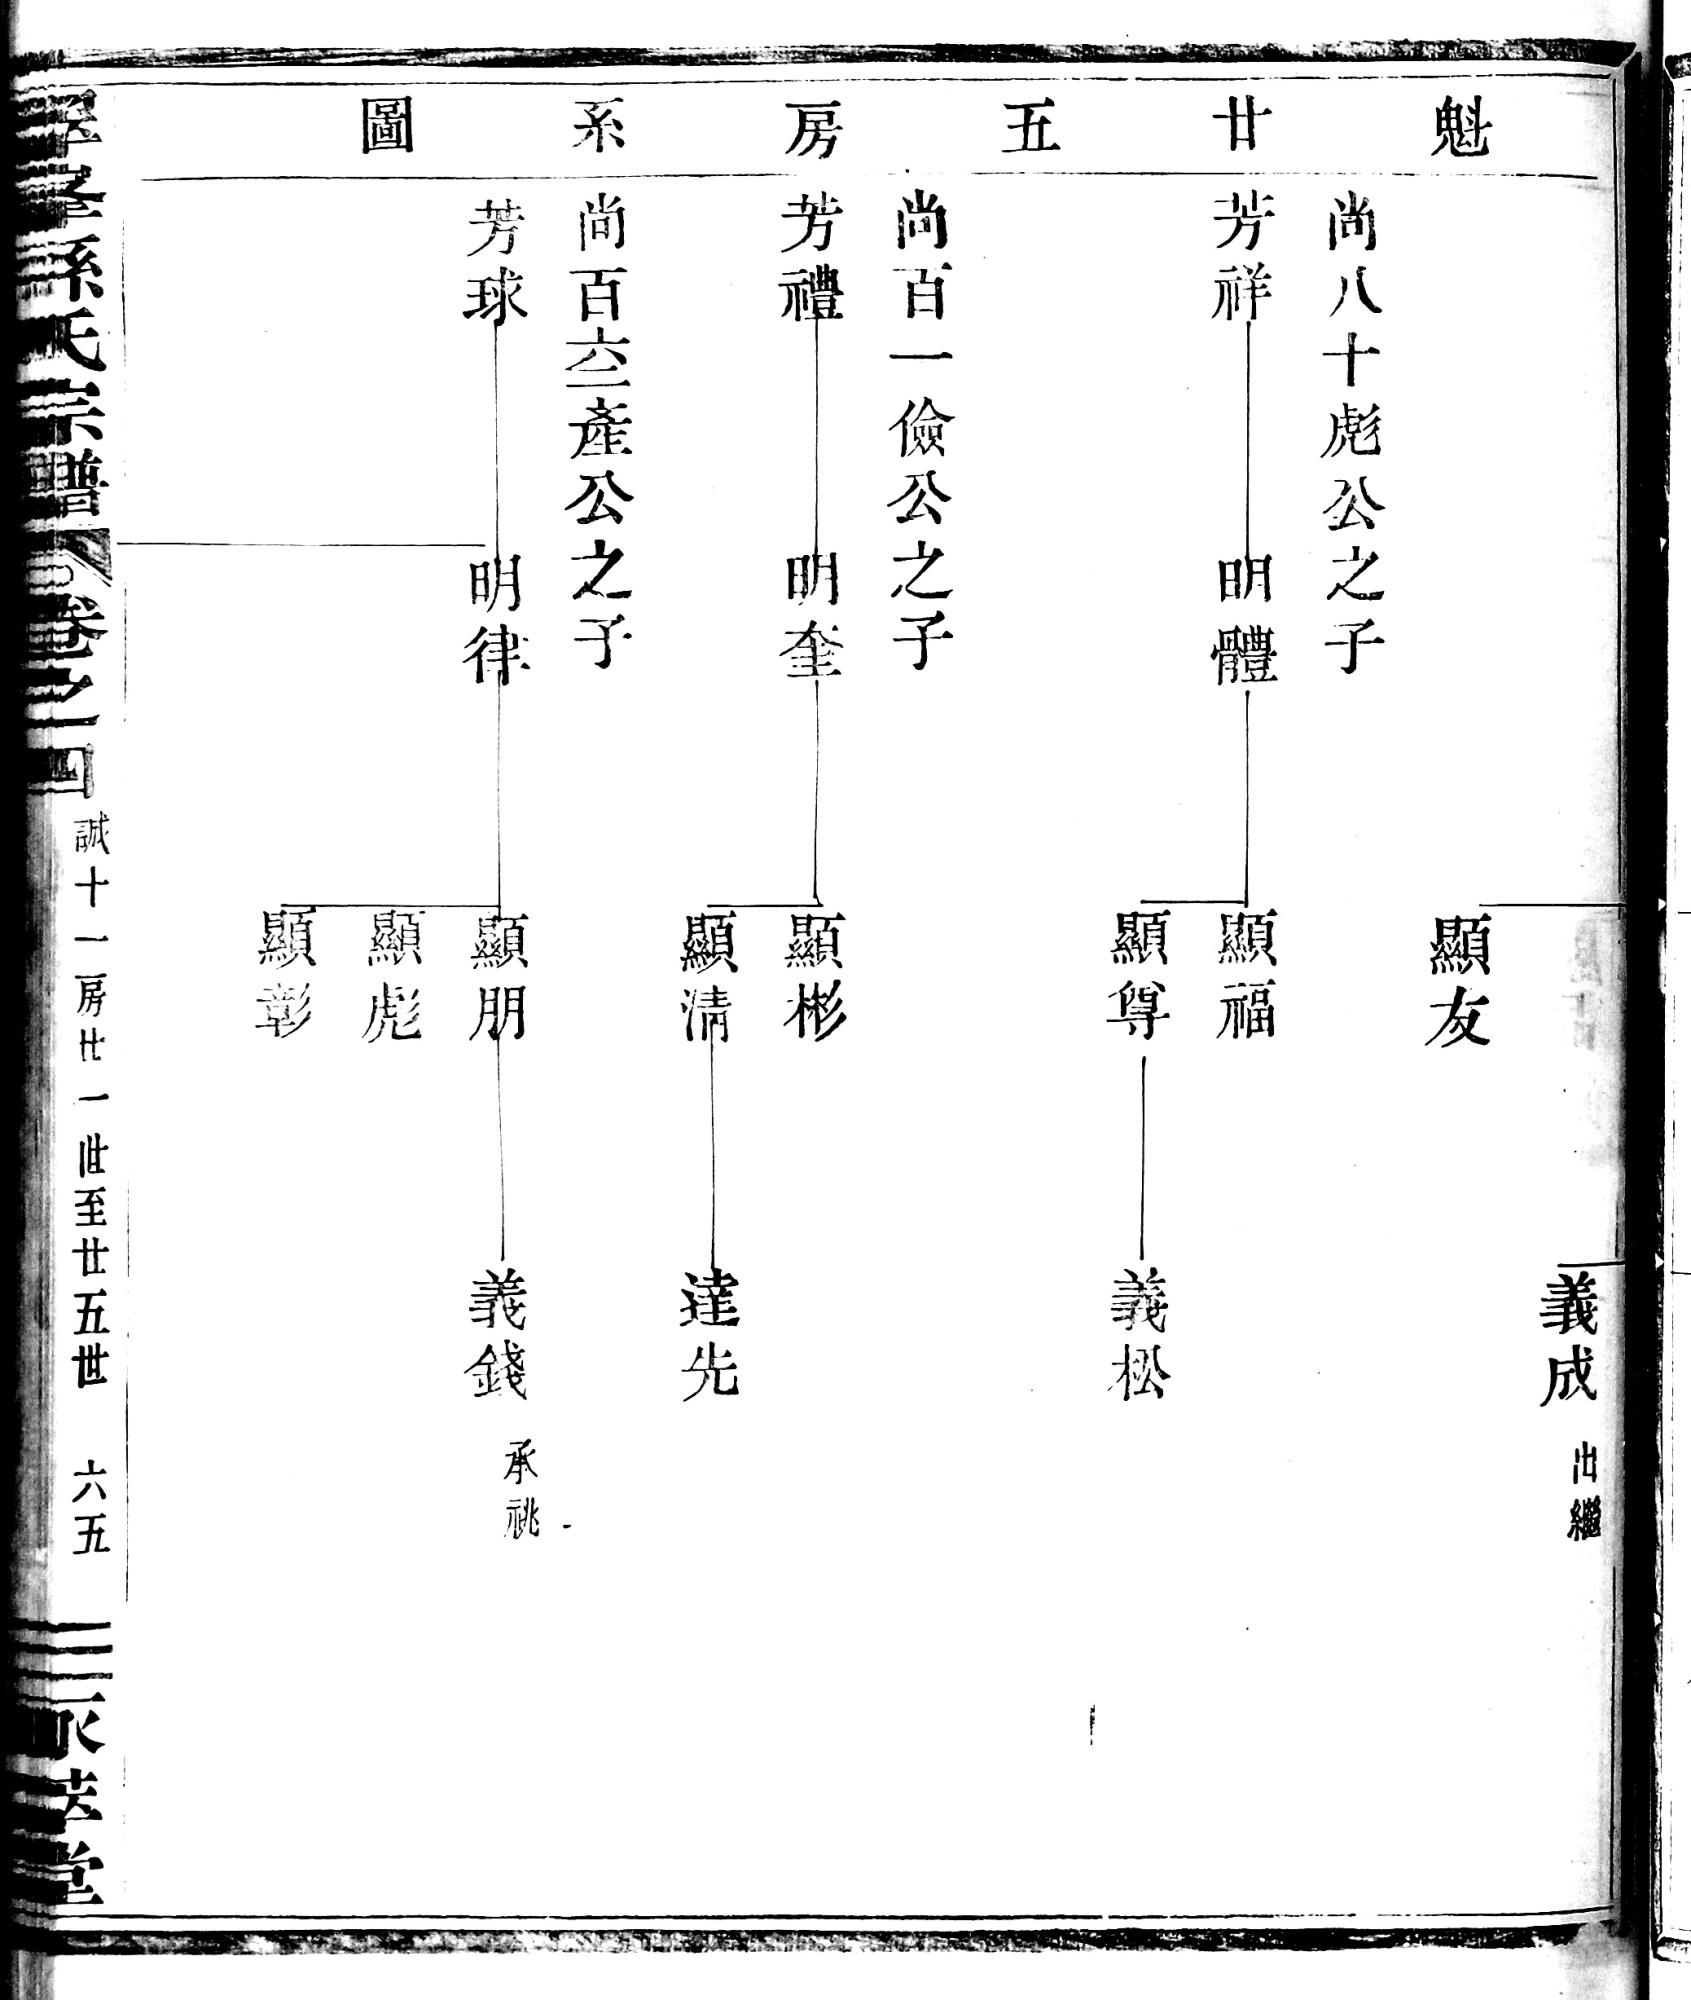 魁廿五房系圖
義成 出繼
顯友
尚八十彪公之子
芳祥 明體 顯福
顯尊 義松
尚百一儉公之子
芳禮 明奎 顯彬
顯清 達先
尚百六三產公之子
芳球 明律 顯朋 義錢 承祧
顯彪
顯彰
孫氏宗譜 卷之一四 誠十一房廿一世至廿五世 六五 萃堂